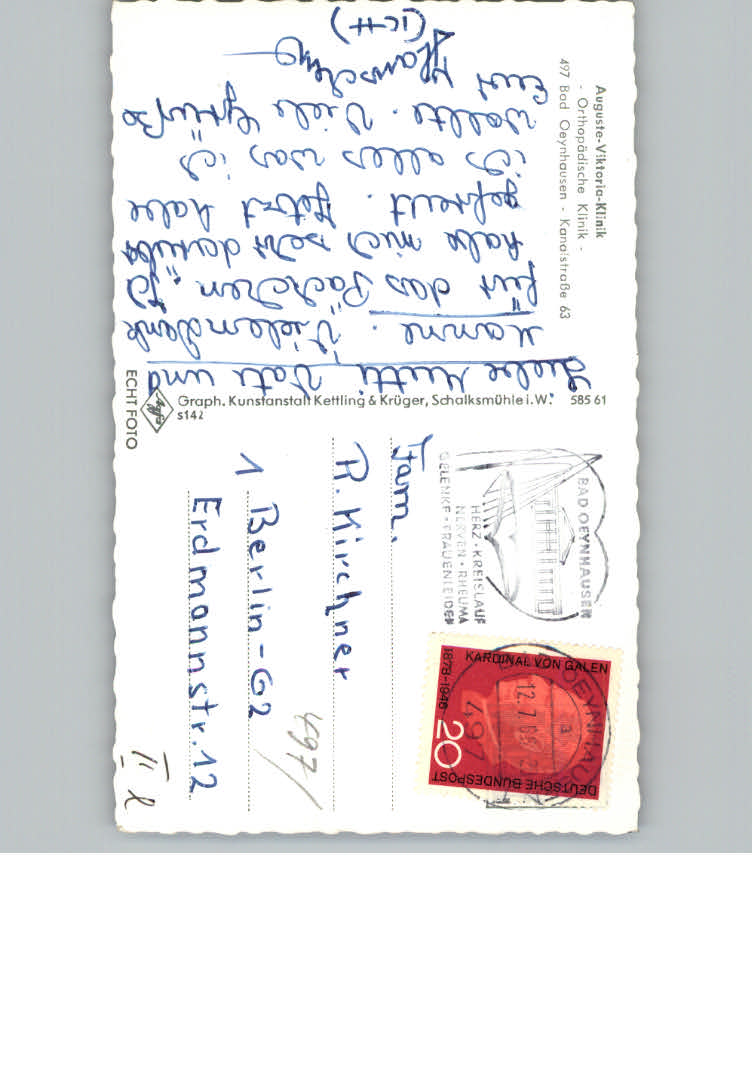 Auguste-Viktoria-Klinik
- Orthopädische Klinik -
497 Bad Oeynhausen - Kanalstraße 63
Liebe Mutti Vati und
Manne. Vielen Dank
für das Päckchen. Ich
habe mich sehr darüber
gefreut. Jetzt habe
ich alles was ich
wollte. Viele Grüße
Euer Hänschen
(ICH)
ECHT FOTO
Agfa
Graph. Kunstanstalt Kettling & Krüger, Schalksmühle i.W. 585 61
S142
BAD OEYNHAUSEN
HERZ · KREISLAUF
NERVEN · RHEUMA
GELENKE · FRAUENLEIDEN
KARDINAL VON GALEN
1878-1946
20
DEUTSCHE BUNDESPOST
OEYNHAUSEN
12.7.6
a
497
Fam.
R. Kirchner
1 Berlin-62
Erdmannstr. 12
497/